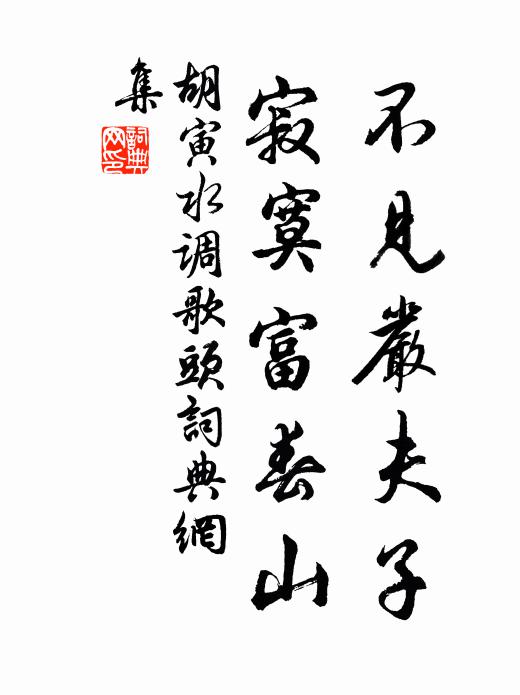 不見嚴夫子
寂寞富春山
胡寅水調歌頭詞典網
集
詞典
网印